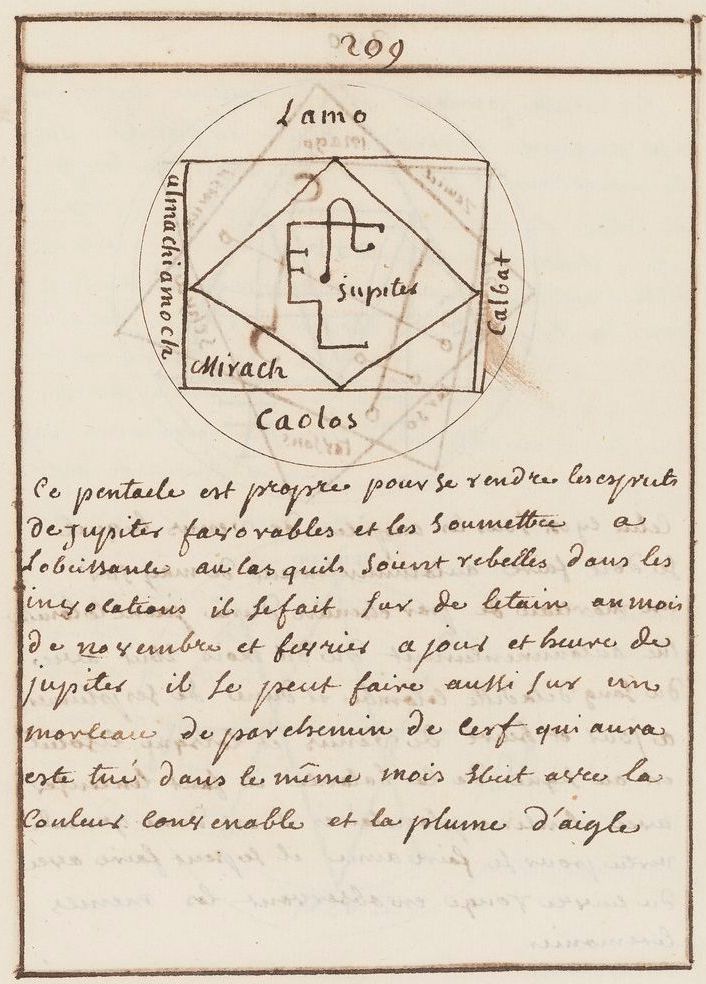 209
Lamo
almachiamoch
Jupiter
Calbat
Mirach
Caolos
Ce pentacle est propre pour se rendre les esprits
de Jupiter favorables et les soumettre a
Lobeissance au cas quils soient rebelles dans les
invocations il se fait sur de letain au mois
de novembre et fevrier a jour et heure de
jupiter il se peut faire aussi sur un
morceau de parchemin de cerf qui aura
este tué dans le même mois avec la
couleur convenable et la plume d'aigle